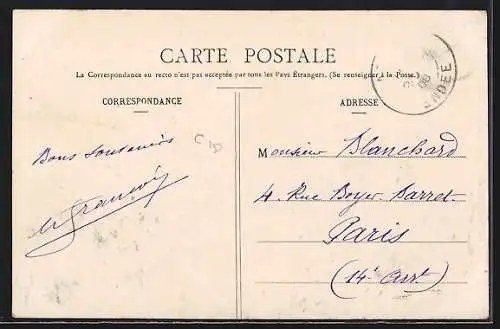 CARTE POSTALE
La Correspondance au recto n'est pas acceptée par tous les Pays Étrangers. (Se renseigner à la Poste.)
CORRESPONDANCE
Bons souvenirs
ADRESSE
Monsieur Blanchard
4. Rue Boyer Barret.
Paris
(14e Arrt)